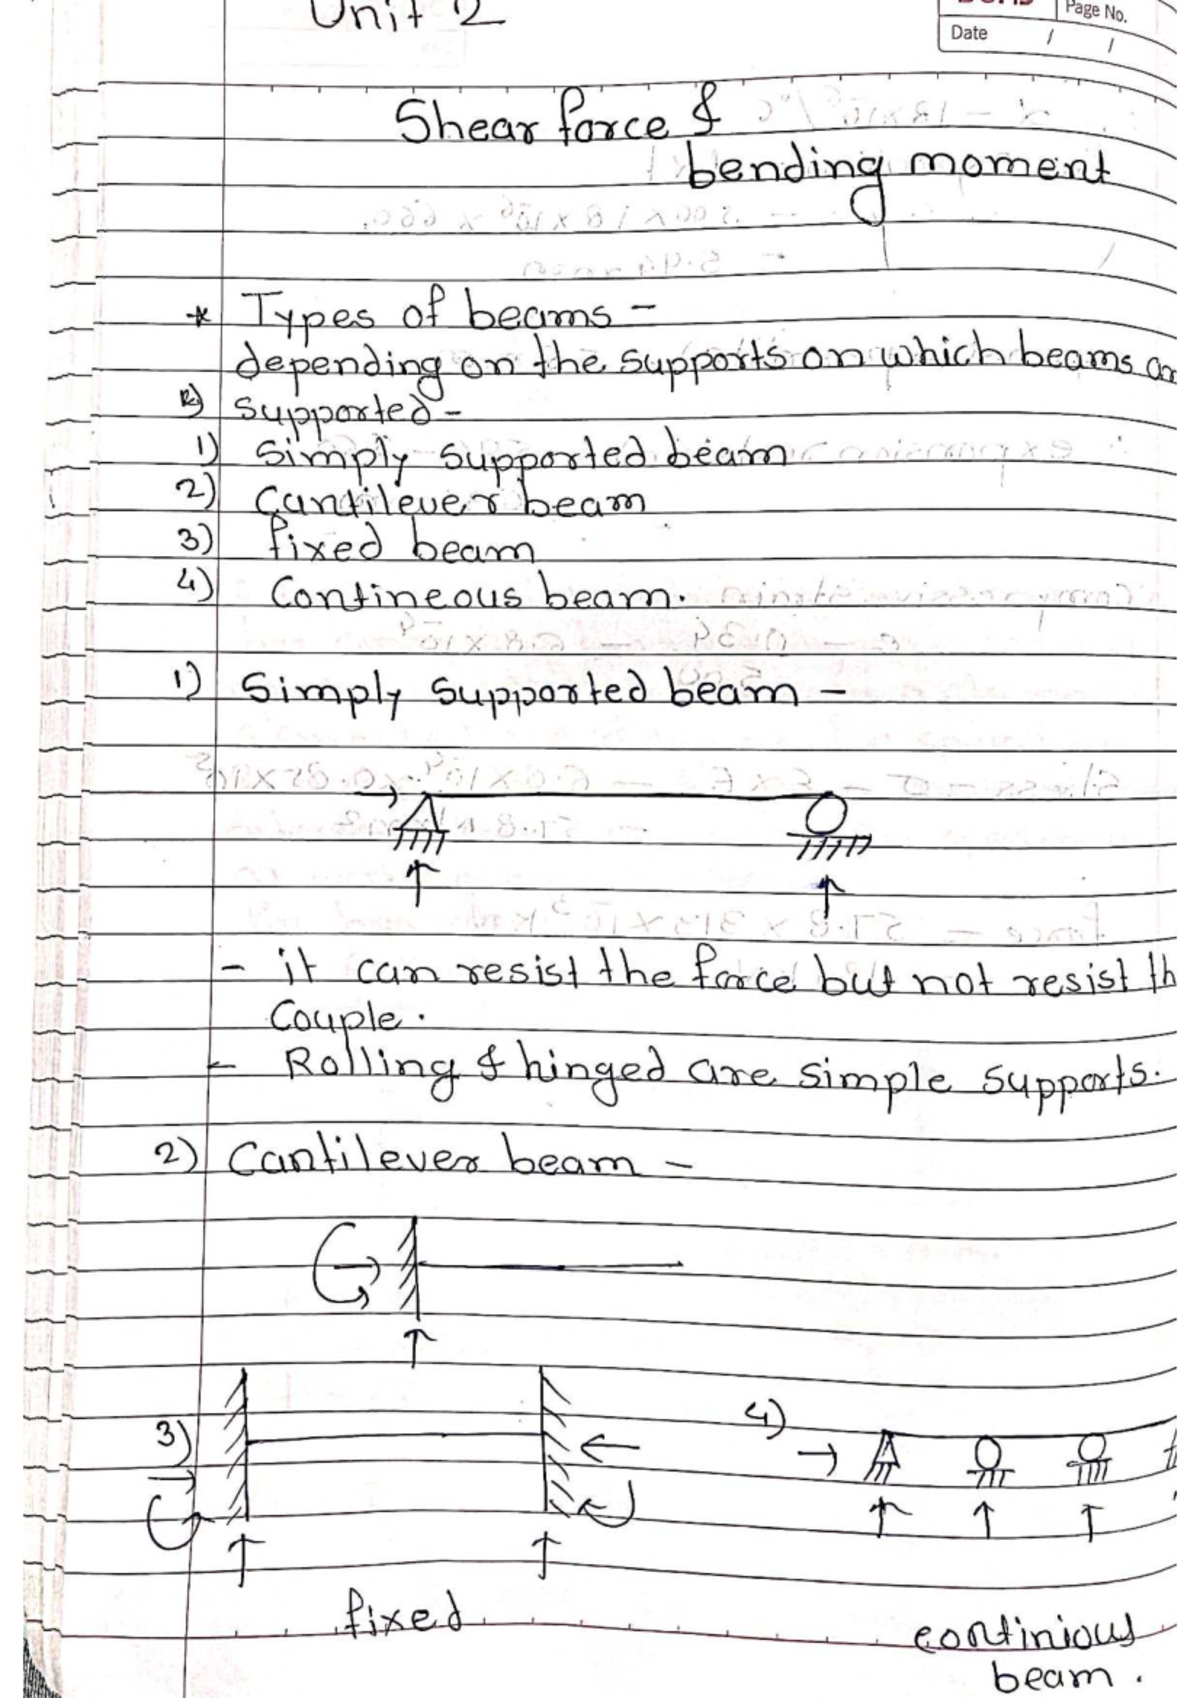 Unit 2
Page No.
Date / /
Shear force &
bending moment
* Types of beams -
depending on the supports on which beams ar
supported -
1) Simply supported beam
2) Cantilever beam
3) fixed beam
4) Contineous beam.
1) Simply supported beam -
- it can resist the force but not resist th
Couple.
- Rolling & hinged are simple supports.
2) Cantilever beam -
3)
4)
fixed
continious
beam.